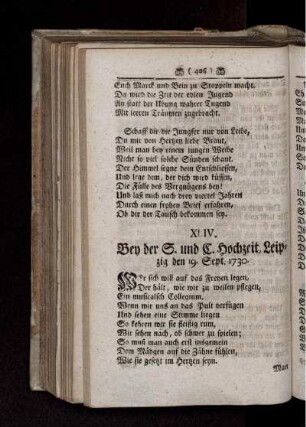 ( 406 )
Euch Marck und Bein zu Stoppeln macht.
Da wird die Zeit der edlen Jugend
An statt der Übung wahrer Tugend
Mit leeren Träumen zugebracht.
Schaff dir die Jungfer nur vom Leibe,
Du mir von Hertzen liebe Braut,
Weil man bey einem jungen Weibe
Nicht so viel solche Sünden schaut.
Der Himmel segne dein Entschliessen,
Und lege dem, der dich wird küssen,
Die Fülle des Vergnügens bey!
Und laß mich nach drey viertel Jahren
Durch einen frohen Brief erfahren,
Ob dir der Tausch bekommen sey.
XLIV.
Bey der S. und C. Hochzeit, Leip-
zig den 19. Sept. 1730.
Wer sich will auf das Freyen legen,
Der hält, wie wir zu weilen pflegen,
Ein musicalisch Collegium.
Wenn wir uns an das Pult verfügen
Und sehen eine Stimme liegen
So kehren wir sie fleißig rum,
Wir sehen nach, ob schwer zu spielen;
So muß man auch erst insgemein
Dem Mädgen auf die Zähne fühlen,
Wie sie gesetzt im Hertzen seyn.